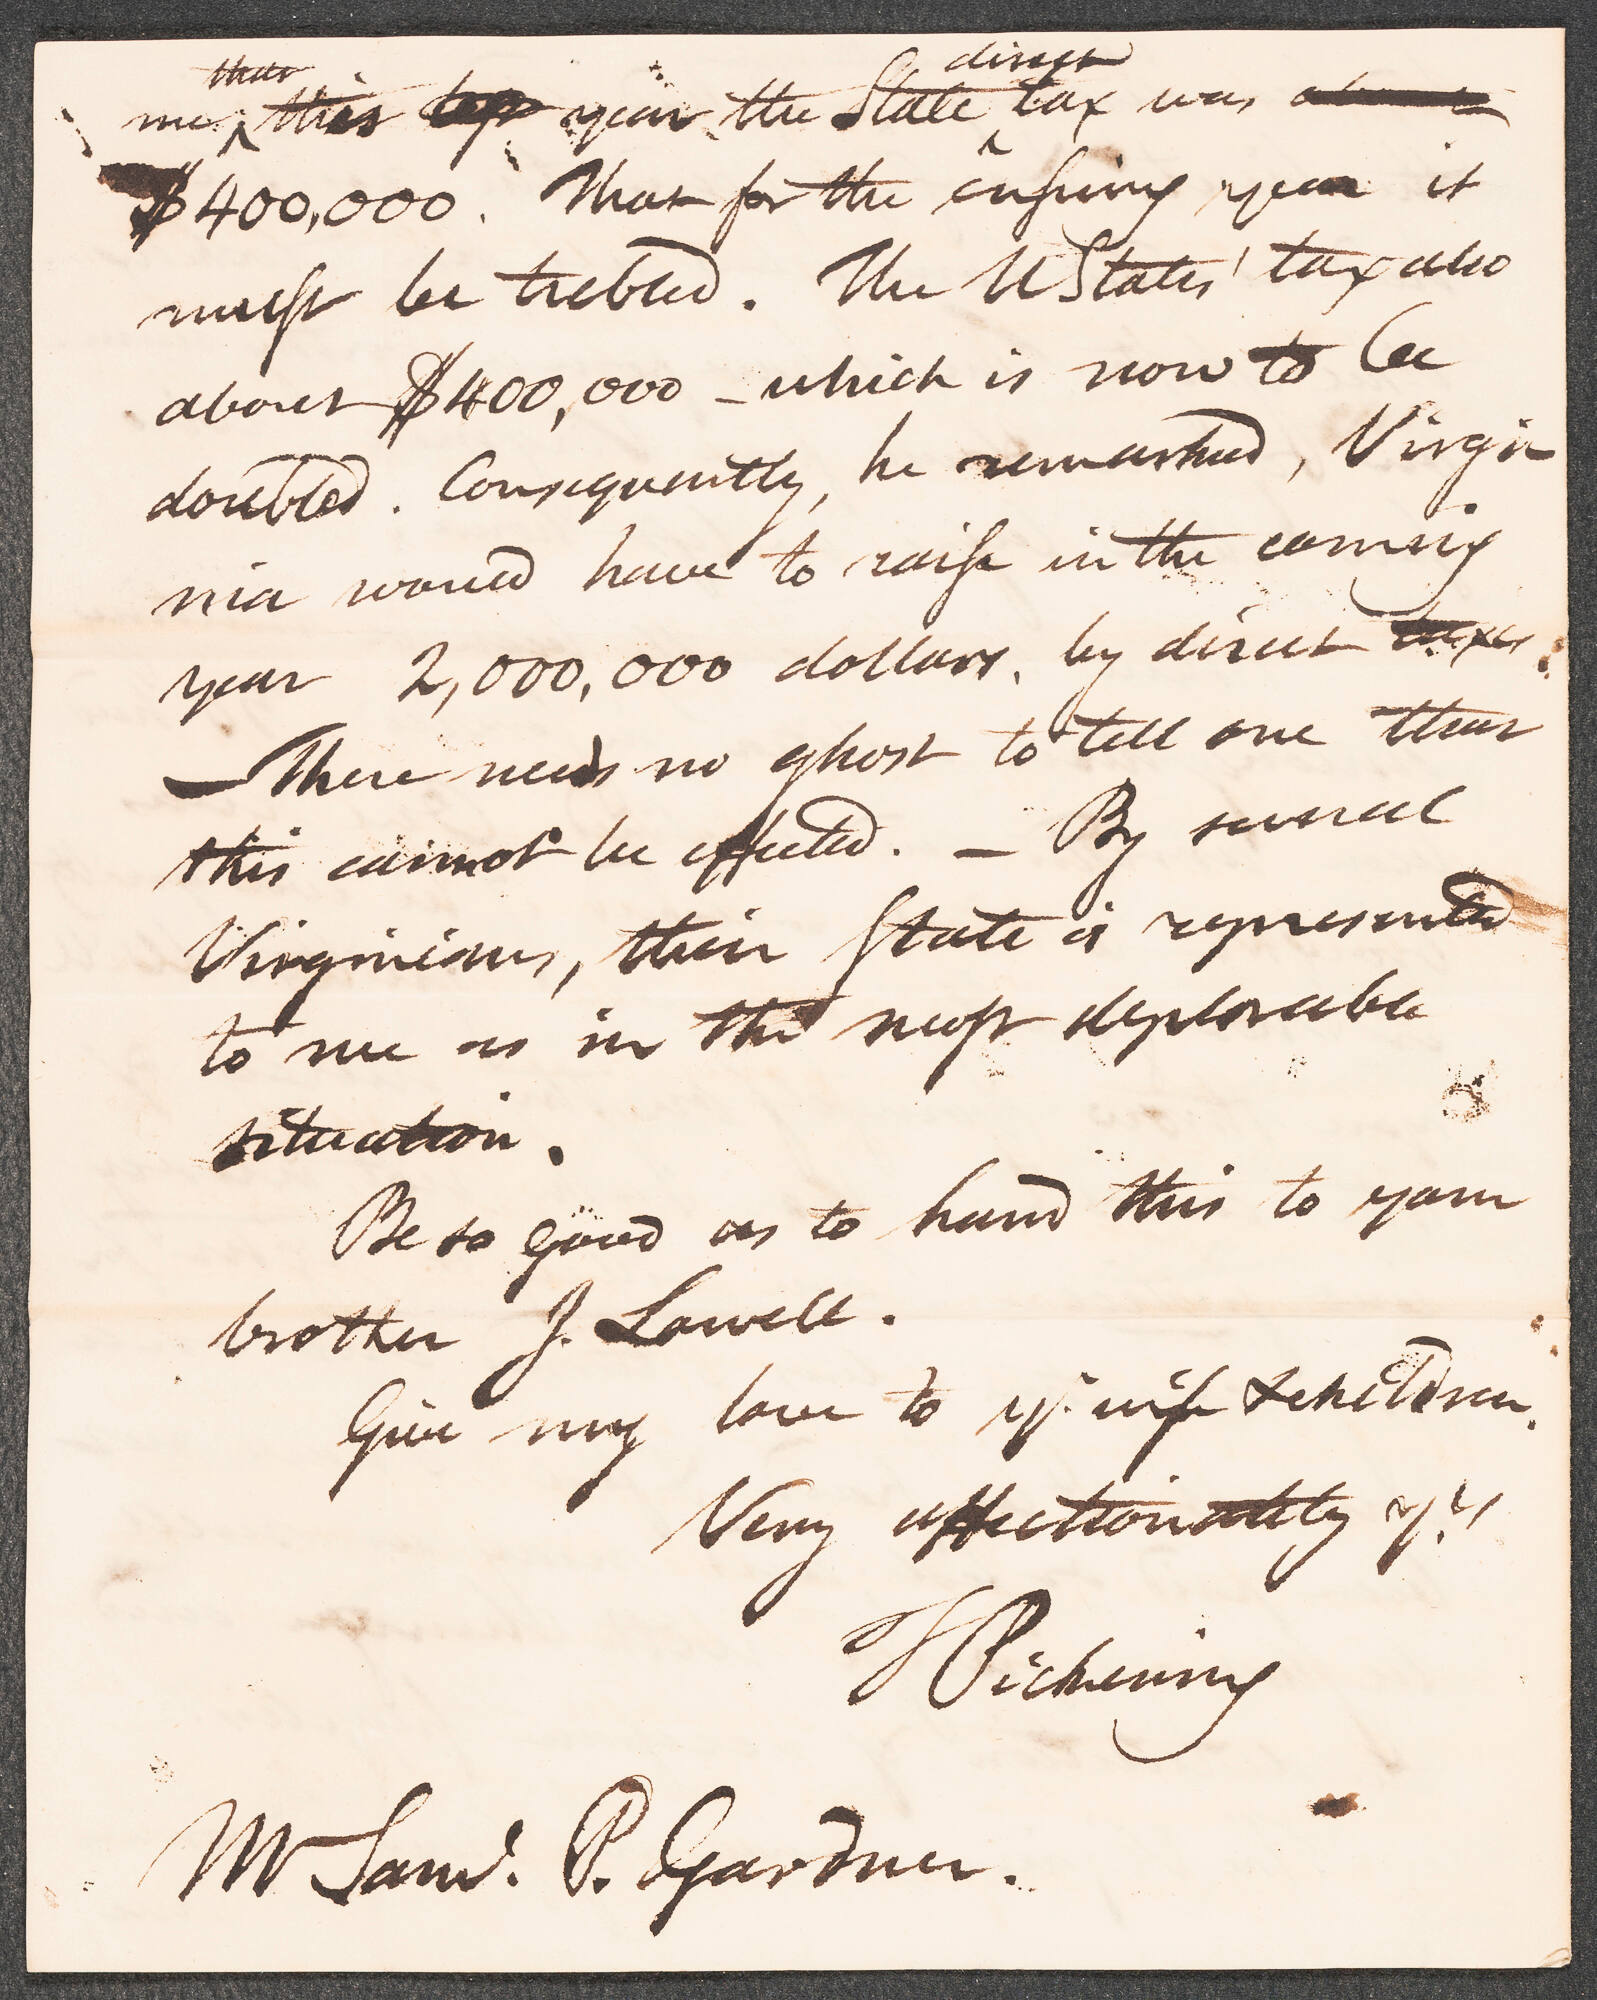 me, that this year the State direct tax was
$400,000. That for the ensuing year it
must be trebled. The UStates' tax also
about $400,000 – which is now to be
doubled. Consequently, he remarked, Virgi
nia would have to raise in the coming
year 2,000,000 dollars, by direct taxes.
— There needs no ghost to tell one that
this cannot be effected. — By several
Virginians, their State is represented
to me as in the most deplorable
situation.
Be so good as to hand this to your
brother J. Lowell.
Give my love to yr. wife & children.
Very affectionately yrs
T Pickering
Mr Saml. P. Gardner.